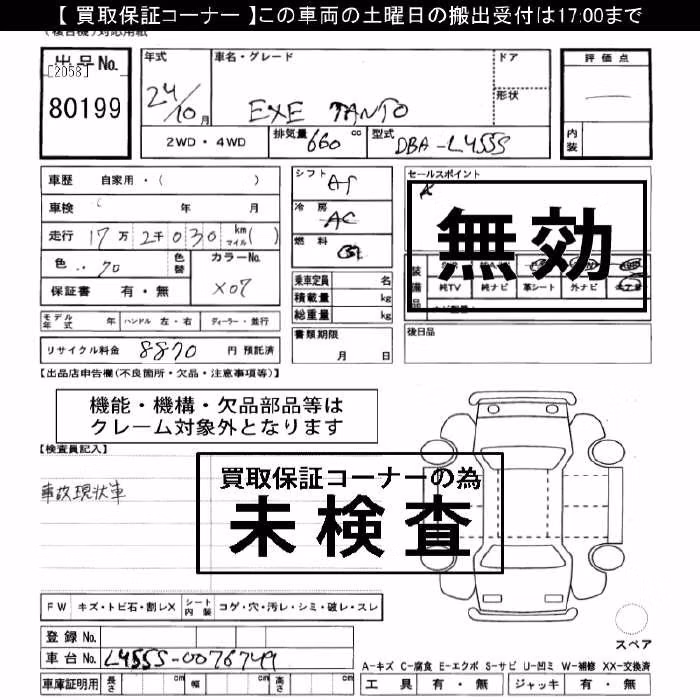 【 買取保証コーナー 】この車両の土曜日の搬出受付は17:00まで
(複合機)対応用紙
出品No.
[2058]
80199
年式
24/10月
車名・グレード
EXE TANTO
ドア
形状
評価点
内装
2WD ・ 4WD
排気量 660 cc
型式 DBA-L455S
車歴 自家用・( )
車検 年 月
走行 17万 2千 030 km マイル( )
色
色替
カラーNo.
X07
保証書 有・無
シフト AT
冷房 AC
燃料
乗車定員 名
積載量 kg
総重量 kg
書類期限
月 日
セールスポイント
無効
装備品
純TV 純ナビ 革シート 外ナビ
後日品
モデル年式 年 ハンドル 左・右 ディーラー・並行
リサイクル料金 8870 円 預託済
【出品店申告欄(不良箇所・欠品・注意事項等)】
機能・機構・欠品部品等は
クレーム対象外となります
【検査員記入】
事故現状車
買取保証コーナーの為
未検査
FW キズ・トビ石・割レX シート内装 コゲ・穴・汚レ・シミ・破レ・スレ
スペア
登録No.
車台No. L455S-0076749
A-キズ C-腐食 E-エクボ S-サビ U-凹ミ W-補修 XX-交換済
車庫証明用 長さ cm 幅 cm 高さ cm
工具 有・無 ジャッキ 有・無